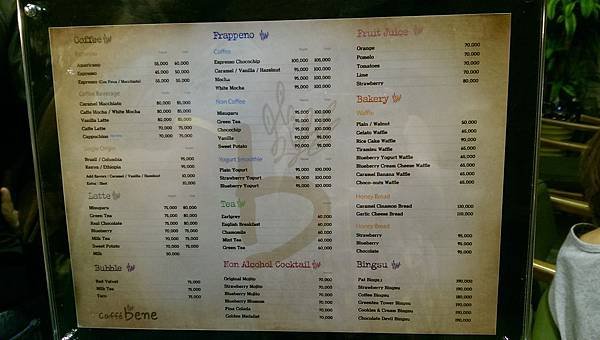 Coffee
Americano 55,000 60,000
Espresso 45,000 50,000
Espresso (Con Panna / Macchiato) 55,000
Coffee Beverage
Caramel Macchiato 80,000 85,000
Caffe Mocha / White Mocha 80,000 85,000
Vanilla Latte 80,000 85,000
Caffe Latte 70,000 75,000
Cappuchino 70,000 75,000
Single Origin
Brazil / Columbia 95,000
Kenya / Ethiopia 95,000
Add Savors : Caramel / Vanilla / Hazelnut 10,000
Extra : Shot 10,000
Latte
Misugaru 75,000 80,000
Green Tea 75,000 80,000
Real Chocolate 75,000 80,000
Blueberry 70,000 75,000
Milk Tea 70,000 75,000
Sweet Potato 70,000 75,000
Milk 50,000
Bubble
Red Velvet 75,000
Milk Tea 75,000
Taro 75,000
Caffé bene
Frappeno
Coffee
Espresso Chocochip 100,000 105,000
Caramel / Vanilla / Hazelnut 95,000 100,000
Mocha 95,000 100,000
White Mocha 95,000 100,000
Non Coffee
Misugaru 95,000 100,000
Green Tea 95,000 100,000
Chocochip 95,000 100,000
Vanilla 90,000 95,000
Sweet Potato 90,000 95,000
Yogurt Smoothie
Plain Yogurt 95,000 100,000
Strawberry Yogurt 95,000 100,000
Blueberry Yogurt 95,000 100,000
Tea
Earlgrey 60,000
English Breakfast 60,000
Chamomile 60,000
Mint Tea 60,000
Green Tea 60,000
Non Alcohol Cocktail
Original Mojito 70,000
Strawberry Mojito 70,000
Blueberry Mojito 70,000
Blueberry Blossom 70,000
Pina Colada 70,000
Golden Medalist 70,000
Fruit Juice
Orange 70,000
Pomelo 70,000
Tomatoes 70,000
Lime 70,000
Strawberry 80,000
Bakery
Waffle
Plain / Walnut 50,000
Gelato Waffle 65,000
Rice Cake Waffle 90,000
Tiramisu Waffle 65,000
Blueberry Yogurt Waffle 65,000
Blueberry Cream Cheese Waffle 65,000
Caramel Banana Waffle 65,000
Choco-nuts Waffle 65,000
Honey Bread
Caramel Cinamon Bread 110,000
Garlic Cheese Bread 110,000
Honey Bread
Strawberry 95,000
Blueberry 95,000
Chocolate 95,000
Bingsu
Pat Bingsu 190,000
Strawberry Bingsu 190,000
Coffee Bingsu 190,000
Greentea Tower Bingsu 190,000
Cookies & Cream Bingsu 190,000
Chocolate Devil Bingsu 190,000